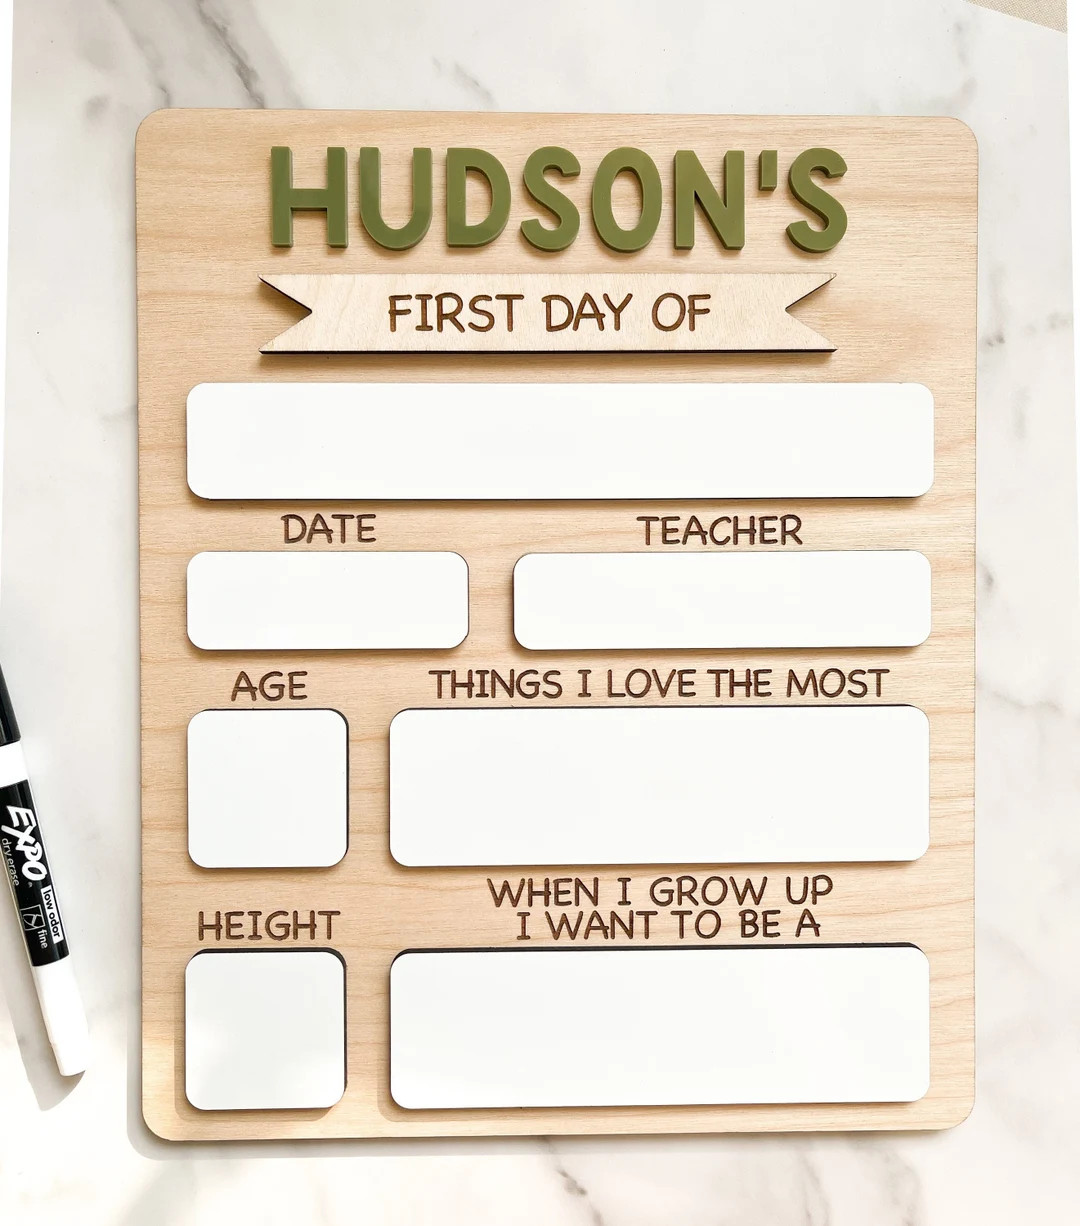 HUDSON'S
FIRST DAY OF
DATE
TEACHER
AGE
THINGS I LOVE THE MOST
WHEN I GROW UP
I WANT TO BE A
HEIGHT
EXPO
dry erase
low odor
fine